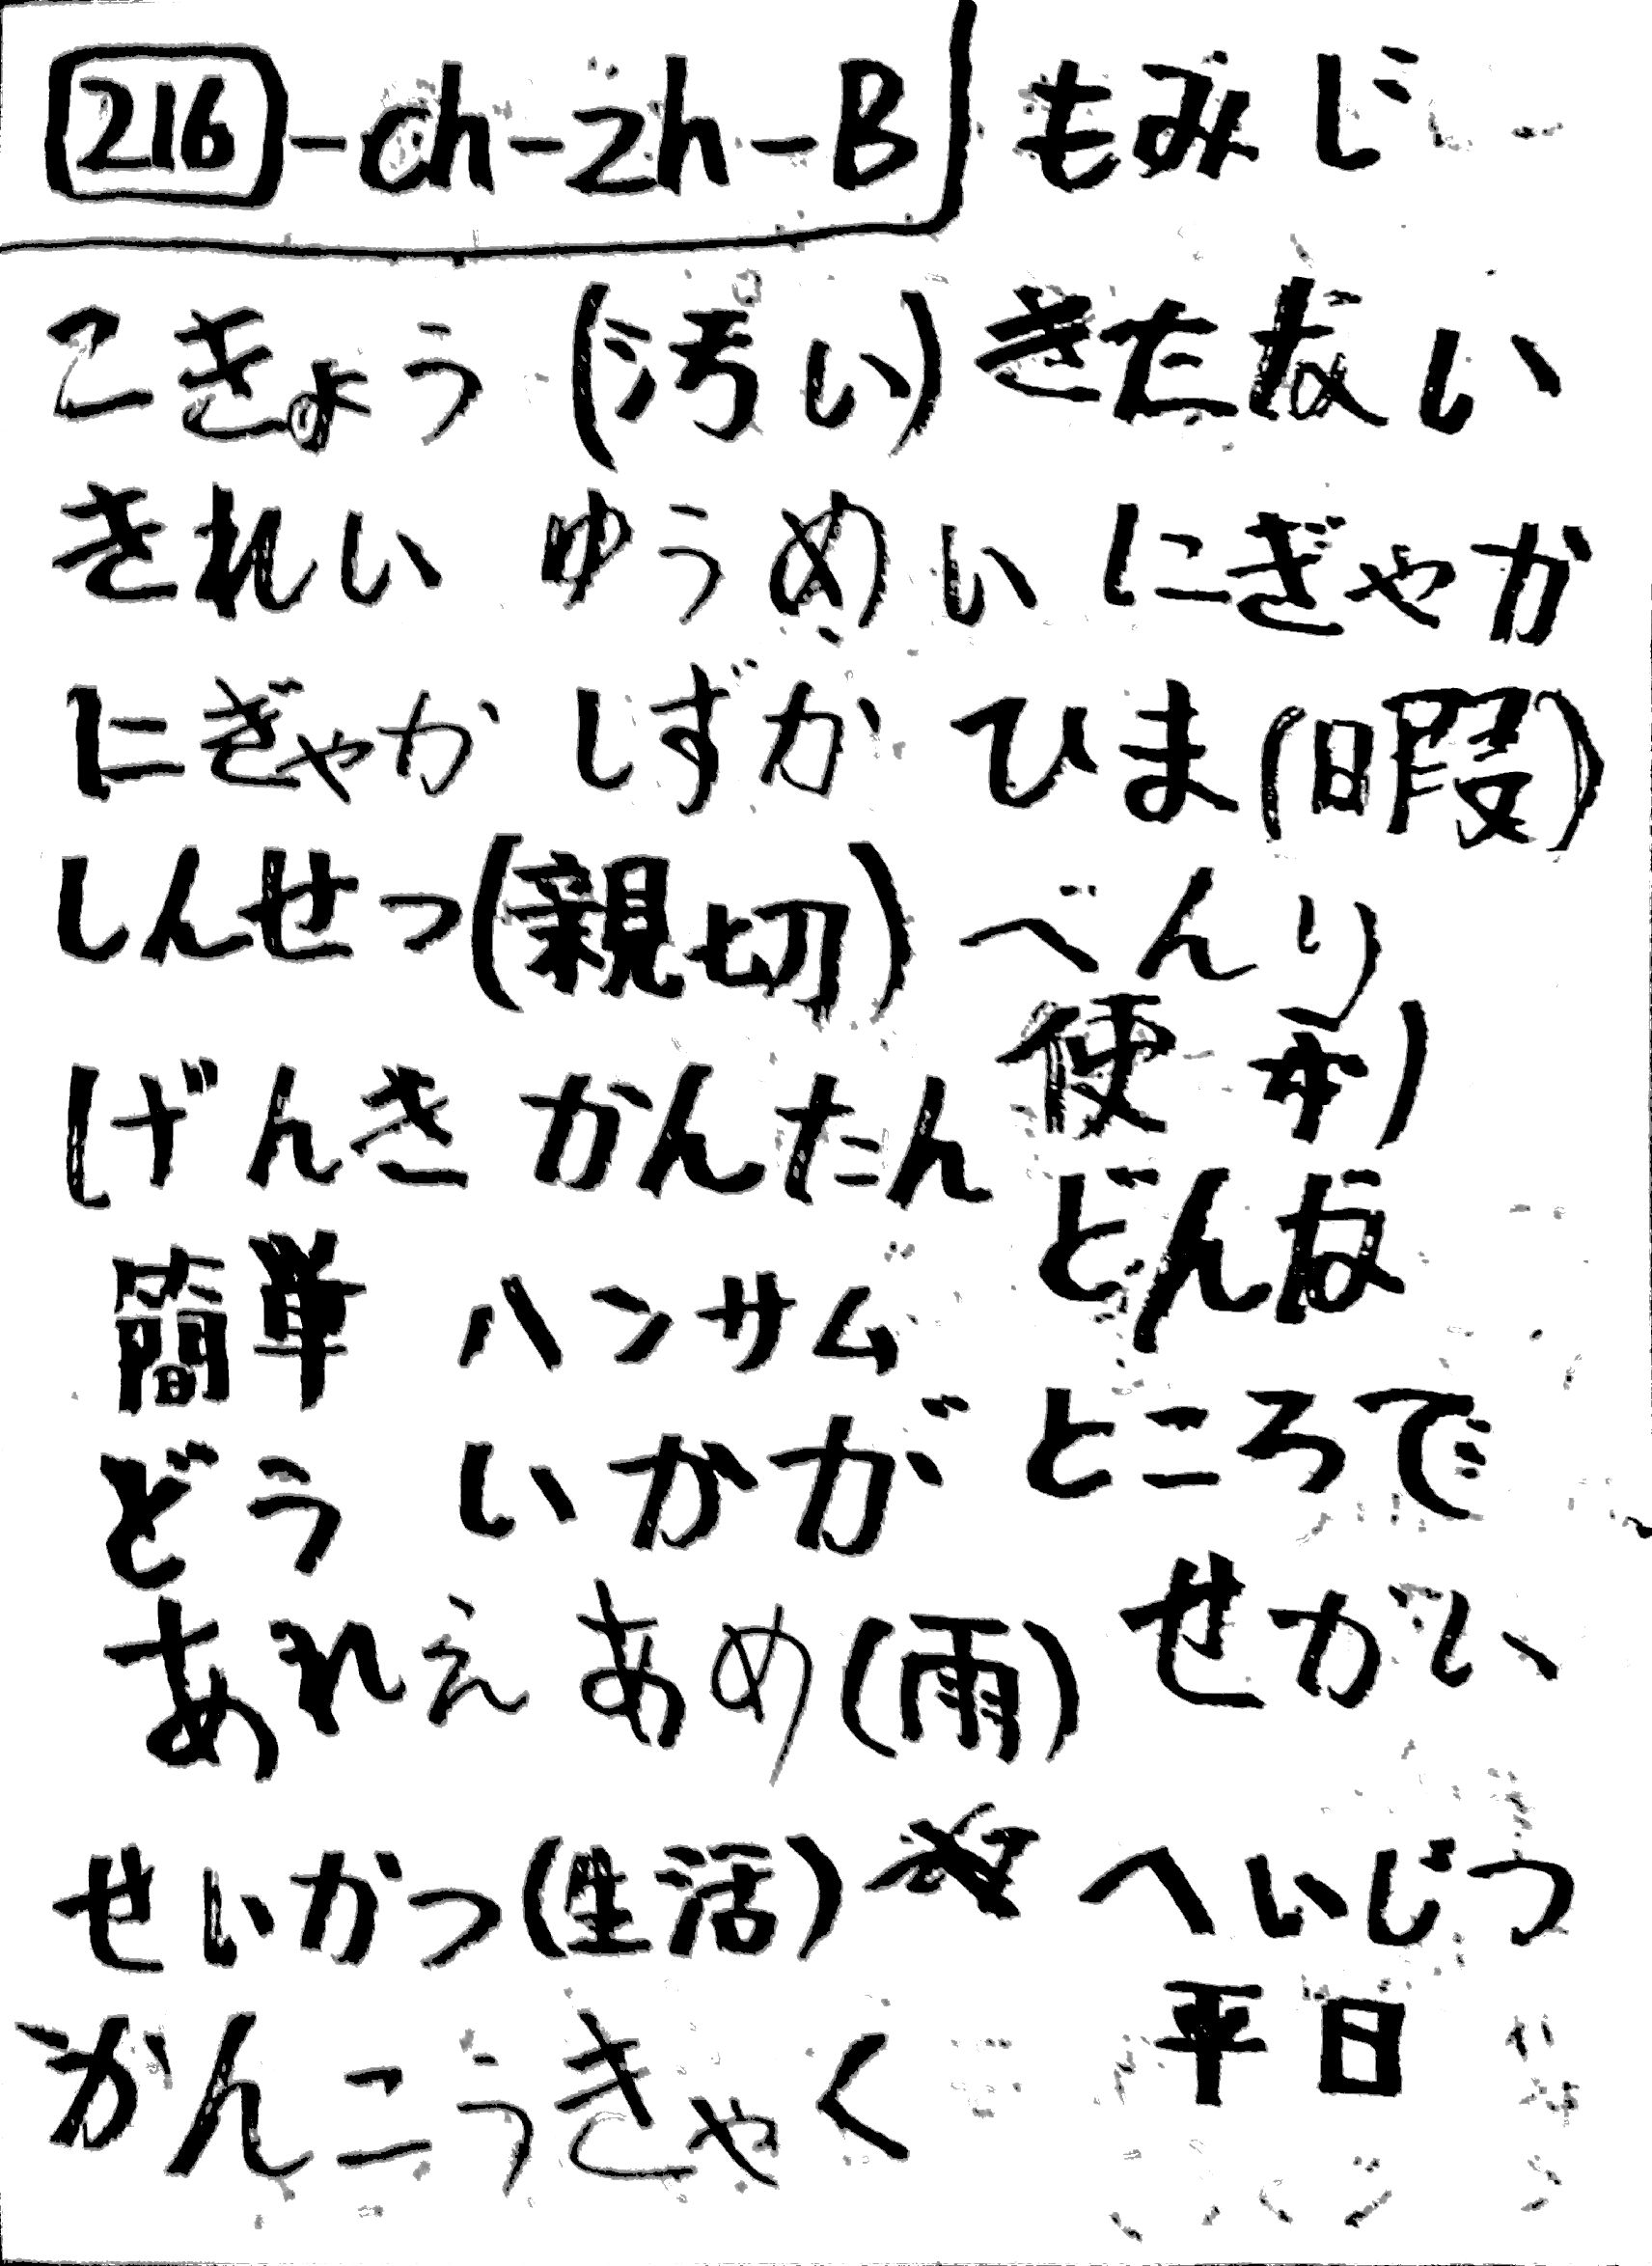 216-ch-zh-B もみじ
こきょう (汚い) きたない
きれい ゆうめい にぎやか
にぎやか しずか ひま(暇)
しんせつ(親切) べんり
便利
げんき かんたん
どんな
簡単 ハンサム
ところで
どう いかが
せかい
あれえ あめ(雨)
せいかつ(生活) へいじつ
平日
かんこうきゃく